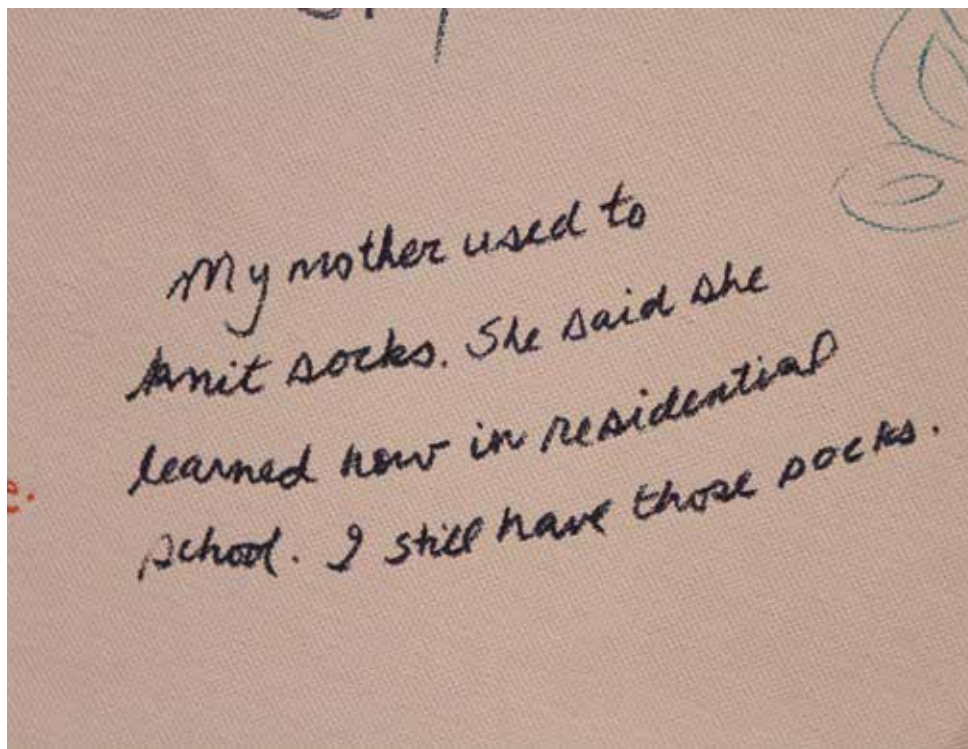 My mother used to
knit socks. She said she
learned how in residential
school. I still have those socks.